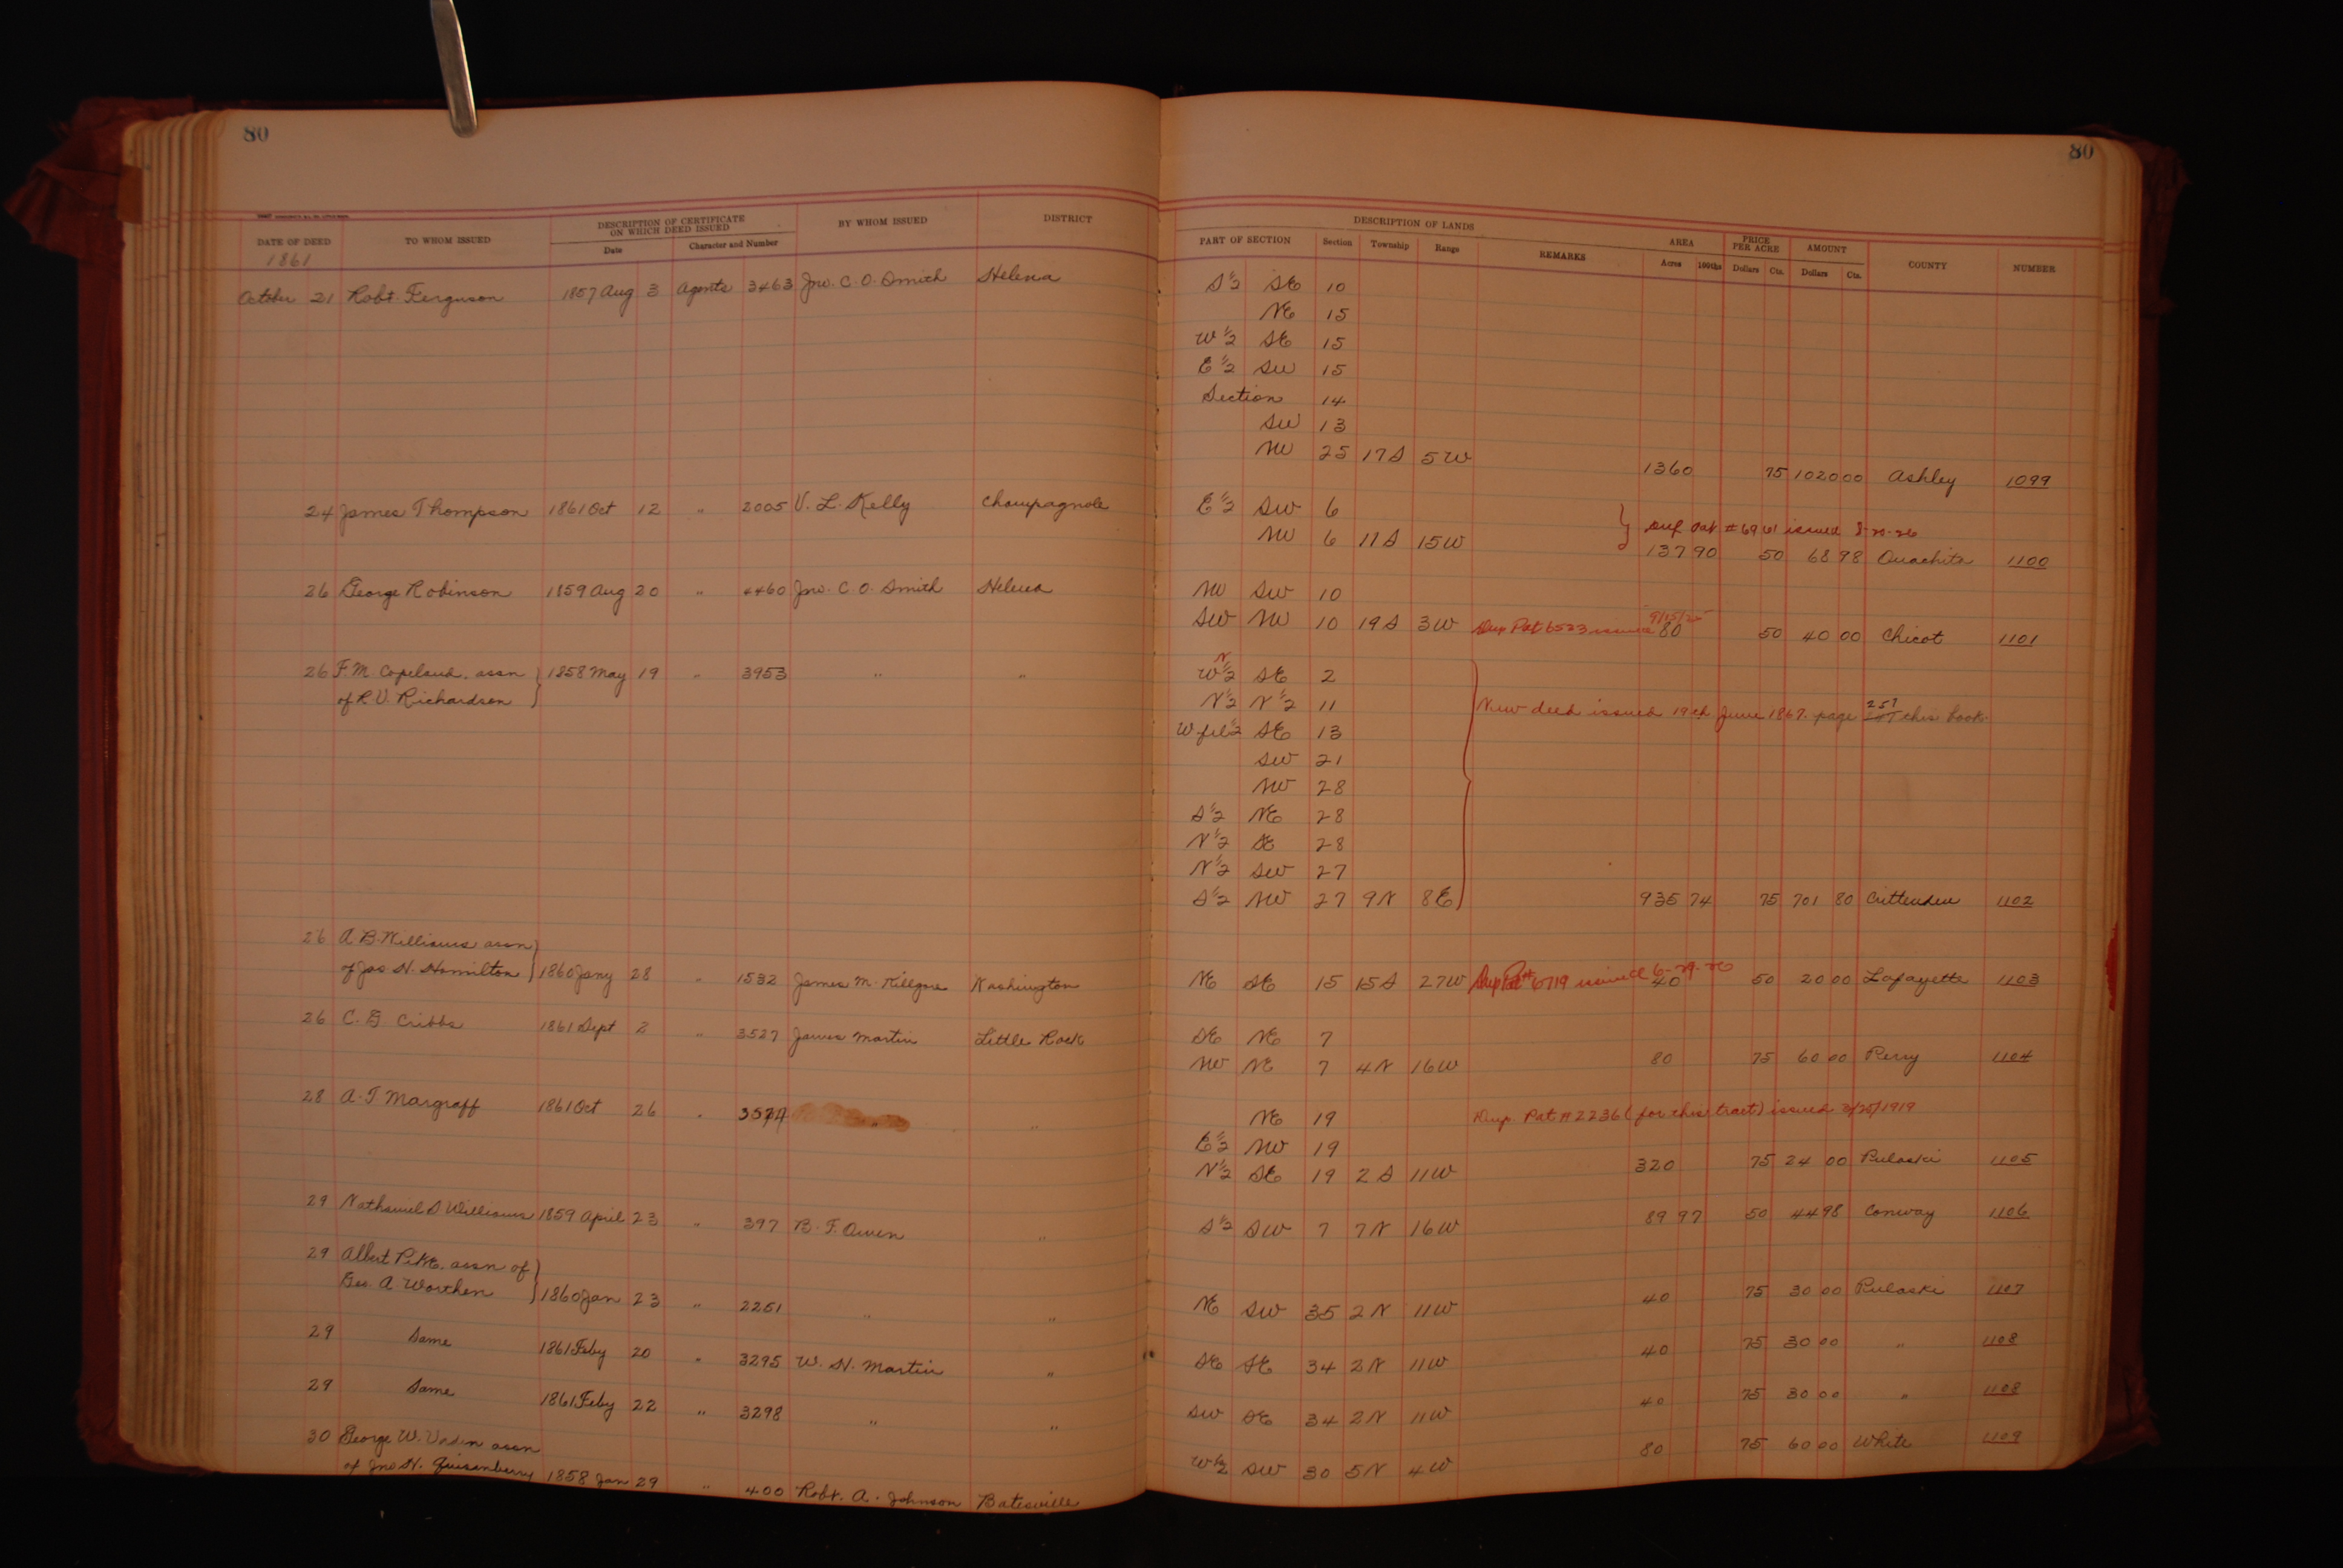 80
80
DATE OF DEED
TO WHOM ISSUED
DESCRIPTION OF CERTIFICATE ON WHICH DEED ISSUED
Date
Character and Number
BY WHOM ISSUED
DISTRICT
DESCRIPTION OF LANDS
PART OF SECTION
Section
Township
Range
REMARKS
AREA
Acres
100ths
PRICE PER ACRE
Dollars
Cts.
AMOUNT
Dollars
Cts.
COUNTY
NUMBER
1861
October 21 Robt. Ferguson 1857 Aug 3 Agents 3463 Jno. C. O. Smith Helena S½ SE 10
NE 15
W½ SE 15
E½ SW 15
Section 14
SW 13
NW 25 17S 5W 1360 75 1020 00 Ashley 1099
24 James Thompson 1861 Oct 12 " 2005 V. L. Kelly Champagnole E½ SW 6
Dup Pat. #6961 issued
NW 6 11S 15W 137 90 50 68 98 Ouachita 1100
26 George Robinson 1859 Aug 20 " 4460 Jno. C. O. Smith Helena NW SW 10
SW NW 10 19S 3W Dup Pat 6523 issued 80 50 40 00 Chicot 1101
26 F. M. Copeland. assn 1858 May 19 " 3953 " " W½ SE 2
N
of R. V. Richardson N½ N½ 11 New deed issued 19th June 1867. page 257 this book.
W frl ½ SE 13
SW 21
NW 28
S½ NE 28
N½ SE 28
N½ SW 27
S½ NW 27 9N 8E 935 74 75 701 80 Crittenden 1102
26 A. B. Williams assn
of Jas. H. Hamilton 1860 Jany 28 " 1532 James M. Killgore Washington NE SE 15 15S 27W Dup Pat # 6719 issued 6-29-26 40 50 20 00 Lafayette 1103
26 C. G Cribbs 1861 Sept 2 " 3527 James Martin Little Rock SE NE 7
NW NE 7 4N 16W 80 75 60 00 Perry 1104
28 A. T Margraff 1861 Oct 26 " " " NE 19 Dup. Pat # 2236 (for this tract) issued 3/25/1919
E½ NW 19
N½ SE 19 2S 11W 320 75 24 00 Pulaski 1105
29 Nathaniel S Williams 1859 April 23 " 397 B. F. Owen " S½ SW 7 7N 16W 89 97 50 44 98 Conway 1106
29 Albert Pike. assn of
Geo. A. Worthen 1860 Jan 23 " 2261 " " NE SW 35 2N 11W 40 75 30 00 Pulaski 1107
29 Same 1861 Feby 20 " 3295 W. H. Martin " SE SE 34 2N 11W 40 75 30 00 " 1108
29 Same 1861 Feby 22 " 3298 " " SW SE 34 2N 11W 40 75 30 00 " 1108
30 George W. Vaden assn
of Jno H. Quisenberry 1858 Jan 29 " 400 Robt. A. Johnson Batesville W½ SW 30 5N 4W 80 75 60 00 White 1109